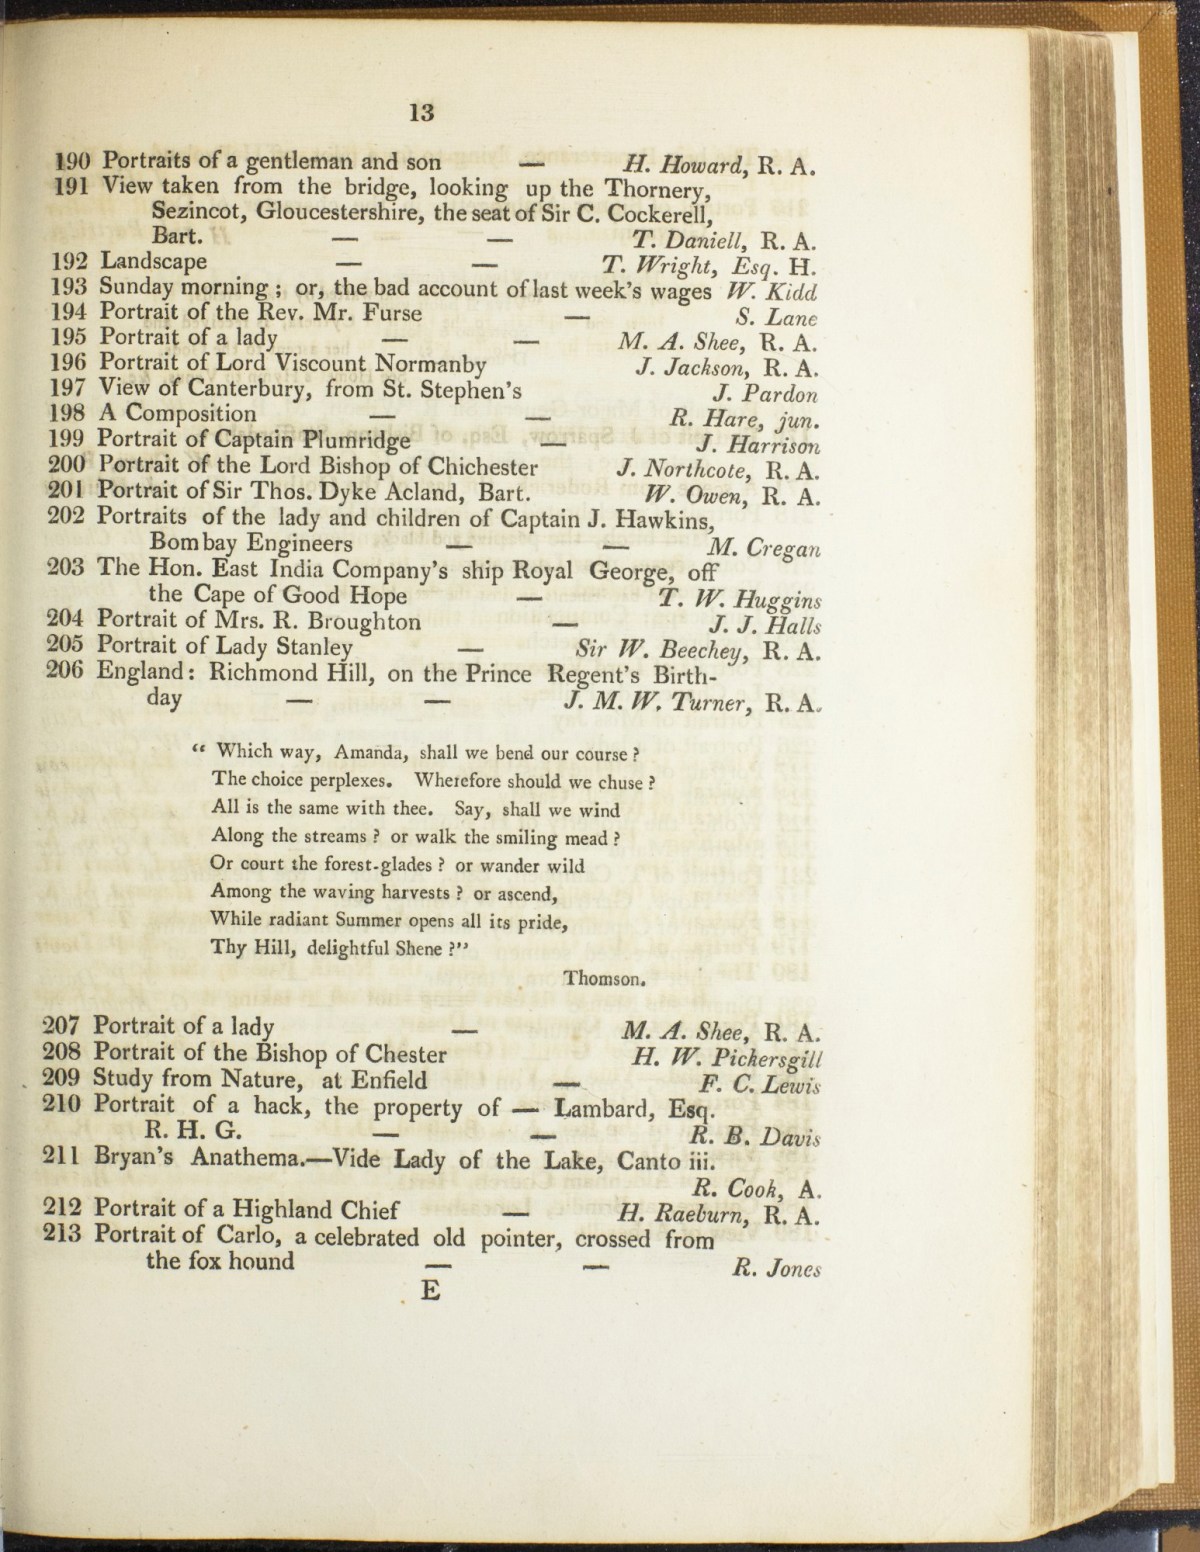 13
190 Portraits of a gentleman and son — H. Howard, R. A.
191 View taken from the bridge, looking up the Thornery,
Sezincot, Gloucestershire, the seat of Sir C. Cockerell,
Bart. — — T. Daniell, R. A.
192 Landscape — — T. Wright, Esq. H.
193 Sunday morning ; or, the bad account of last week's wages W. Kidd
194 Portrait of the Rev. Mr. Furse — S. Lane
195 Portrait of a lady — — M. A. Shee, R. A.
196 Portrait of Lord Viscount Normanby J. Jackson, R. A.
197 View of Canterbury, from St. Stephen's J. Pardon
198 A Composition — — R. Hare, jun.
199 Portrait of Captain Plumridge — J. Harrison
200 Portrait of the Lord Bishop of Chichester J. Northcote, R. A.
201 Portrait of Sir Thos. Dyke Acland, Bart. W. Owen, R. A.
202 Portraits of the lady and children of Captain J. Hawkins,
Bombay Engineers — — M. Cregan
203 The Hon. East India Company's ship Royal George, off
the Cape of Good Hope — T. W. Huggins
204 Portrait of Mrs. R. Broughton — J. J. Halls
205 Portrait of Lady Stanley — Sir W. Beechey, R. A.
206 England: Richmond Hill, on the Prince Regent's Birth-
day — — J. M. W. Turner, R. A.
“ Which way, Amanda, shall we bend our course ?
The choice perplexes. Wherefore should we chuse ?
All is the same with thee. Say, shall we wind
Along the streams ? or walk the smiling mead ?
Or court the forest-glades ? or wander wild
Among the waving harvests ? or ascend,
While radiant Summer opens all its pride,
Thy Hill, delightful Shene ?”
Thomson.
207 Portrait of a lady — M. A. Shee, R. A.
208 Portrait of the Bishop of Chester H. W. Pickersgill
209 Study from Nature, at Enfield — F. C. Lewis
210 Portrait of a hack, the property of — Lambard, Esq.
R. H. G. — — R. B. Davis
211 Bryan's Anathema.—Vide Lady of the Lake, Canto iii.
R. Cook, A.
212 Portrait of a Highland Chief — H. Raeburn, R. A.
213 Portrait of Carlo, a celebrated old pointer, crossed from
the fox hound — — R. Jones
E